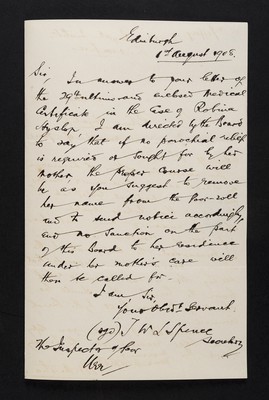 Edinburgh
1st August 1908.
Sir, In answer to your letter of
the 29th ultimo and enclosed Medical
Certificate in the case of Robina
Hyslop, I am directed by the Board
to say that if no parochial relief
is required or sought for by her
mother the proper course will
be as you suggest to remove
her name from the poor-roll
and to send notice accordingly,
and no sanction on the part
of this Board to her residence
under her mother's care will
then be called for.
I am Sir,
Your Obedt. Servant
(sgd) J W L Spence
Secretary
The Inspector of Poor
Urr